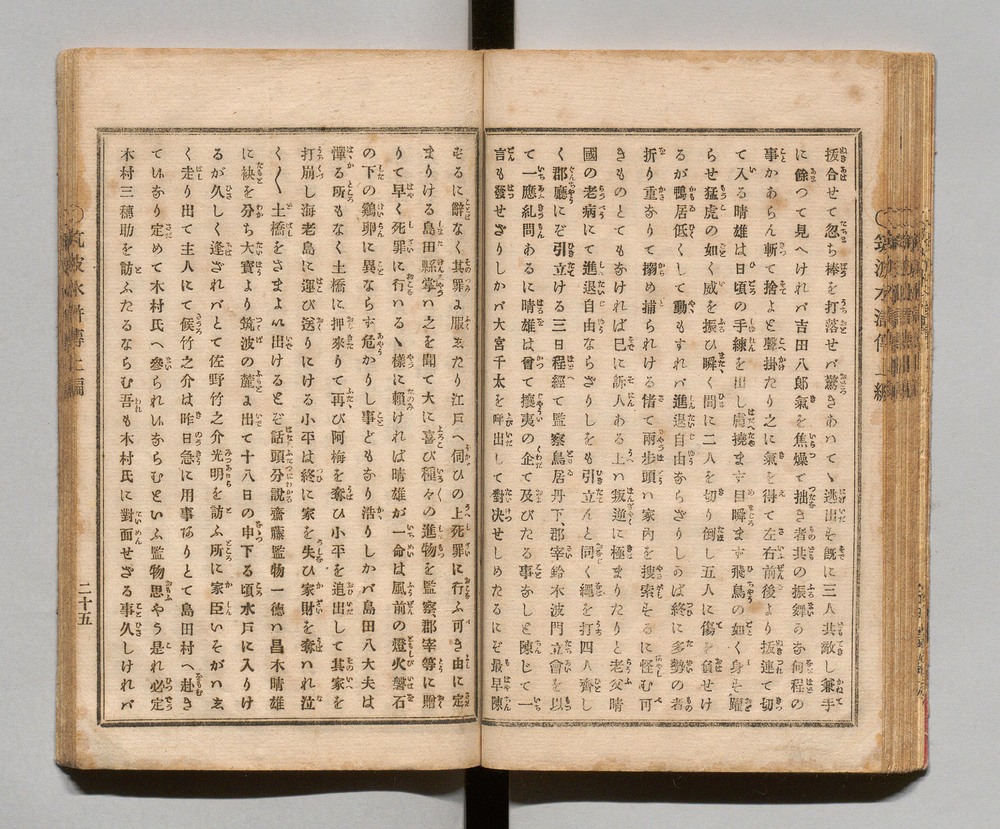 抜合せて忽ち棒を打落せバ驚きあハてゝ逃出を既に三人共敵し兼手
に餘つて見へけれバ吉田八郎氣を焦燥て拙き者共の振舞かな何程の
事かあらん斬て捨よと聲掛たり之に氣を得て左右前後より抜連て切
て入る晴雄は日頃の手練を出し膚撓まず目瞬ます飛鳥の如く身を躍
らせ猛虎の如く威を振ひ瞬く間に二人を切り倒し五人に傷を負せけ
るが鴨居低くして動もすれバ進退自由ならざりしかば終に多勢の者
折り重なりて搦め捕られける偖て兩步頭ハ家內を搜索するに怪む可
きものとてもなければ已に訴人ある上ハ叛逆に極まりたりと老父晴
國の老病にて進退自由ならざりしをも引立んと同く繩を打四人齊し
く郡廳にぞ引立ける三日程經て監察鳥居丹下、郡宰鈴木波門立會を以
て一應糺問あるに晴雄は曾て攘夷の企て及びたる事なしと陳じて一
言も發せざりしかバ大宮千太を呼出して對決せしめたるにぞ最早陳
するに辭なく其罪に服したり江戸へ伺ひの上死罪に行ふ可き由に定
まりける島田縣掌ハ之を聞て大に喜び種々の進物を監察郡宰等に贈
りて早く死罪に行ハるゝ樣に賴ければ晴雄が一命は風前の燈火磐石
の下の鷄卵に異ならず危かりし事どもなり浩りしかバ島田八大夫は
憚る所もなく土橋に押來りて再び阿梅を奪ひ小平を追出して其家を
打崩し海老島に運び送りにける小平は終に家を失ひ家財を奪ハれ泣
く〱土橋をさまよひ出けるとぞ話頭分說齋藤監物一德ハ昌木晴雄
に袂を分ち大寶より筑波の麓に出て十八日の申下る頃水戸に入りけ
るが久しく逢ざれバとて佐野竹之介光明を訪ふ所に家臣いそがハしく
く走り出て主人にて候竹之介は昨日急に用事ありとて島田村へ赴き
ていなり定めて木村氏へ參られいならむといふ監物思やう是れ必定
木村三穗助を訪ふたるならむ吾も木村氏に對面せざる事久しけれバ
筑波水滸傳上編
二十五